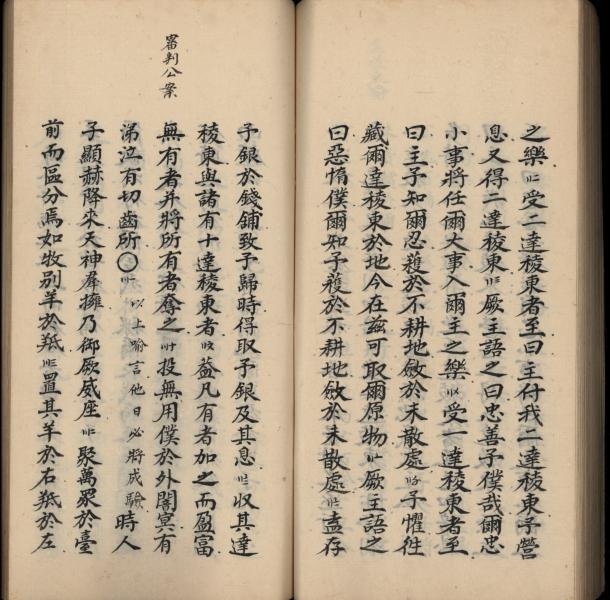 之樂受二達稜東者至曰主付我二達稜東予營
息又得二達稜東厥主語之曰忠善予僕哉爾忠
小事將任爾大事入爾主之樂受一達稜東者至
曰主予知爾忍穫於不耕地斂於未散處予懼徃
藏爾達稜東於地今在兹可取爾原物厥主語之
曰惡惰僕爾知予穫於不耕地斂於未散處盍存
審判公案
予銀於錢鋪致予歸時得取予銀及其息收其達
稜東與諸有十達稜東者葢凡有者加之而盈富
無有者并將所有者奪之投無用僕於外闇冥有
涕泣有切齒所〇以上喻言他日必將成驗時人
子顯赫降來天神羣擁乃御厥威座聚萬眾於臺
前而區分焉如牧別羊於羝置其羊於右羝於左